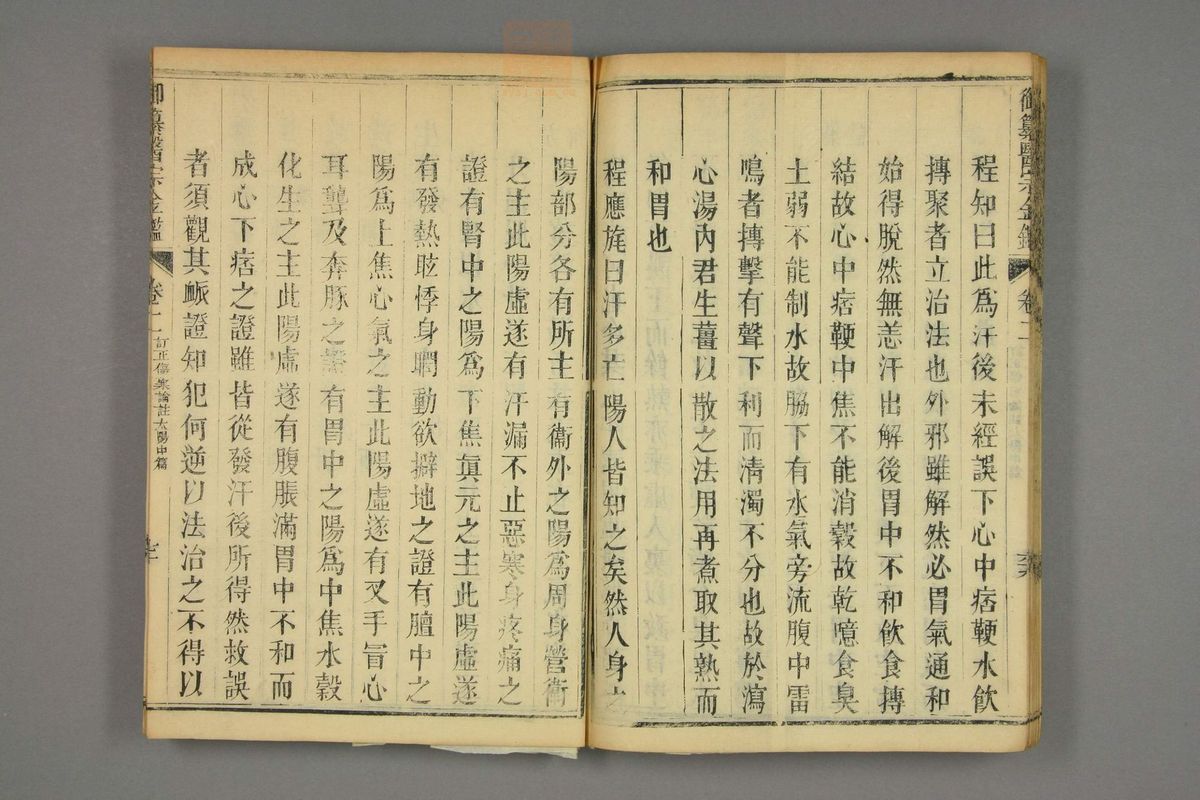 御纂醫宗金鑑 卷二
程知曰此為汗後未經誤下心中痞鞕水飲
摶聚者立治法也外邪雖解然必胃氣通和
始得脫然無恙汗出解後胃中不和飲食摶
結故心中痞鞕中焦不能消穀故乾噫食臭
土弱不能制水故脇下有水氣旁流腹中雷
鳴者摶擊有聲下利而清濁不分也故於瀉
心湯內君生薑以散之法用再煮取其熟而
和胃也
程應旄曰汗多亡陽人皆知之矣然人身之
陽部分各有所主有衞外之陽為周身營衞
之主此陽虛遂有汗漏不止惡寒身疼痛之
證有腎中之陽為下焦眞元之主此陽虛遂
有發熱眩悸身瞤動欲擗地之證有膻中之
陽為上焦心氣之主此陽虛遂有叉手冒心
耳聾及奔豚之證有胃中之陽為中焦水穀
化生之主此陽虛遂有腹脹滿胃中不和而
成心下痞之證雖皆從發汗後所得然救誤
者須觀其脈證知犯何逆以法治之不得以
御纂醫宗金鑑 卷二 訂正傷寒論註太陽中篇